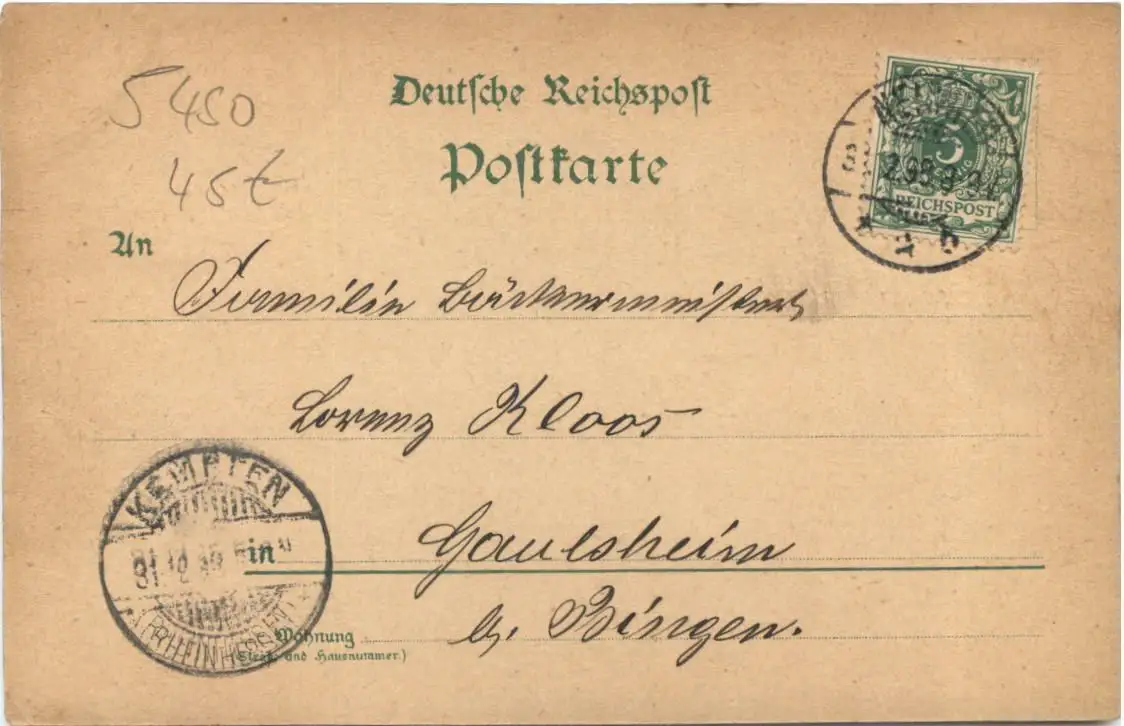 5450
45€
Deutsche Reichspost
Postkarte
5
REICHSPOST
An
Familie Bäckermeister
Lorenz Kloos
KEMPTEN
31.12.98
(RHEINHESSEN)
in Gaulsheim
Wohnung
(Straße und Hausnummer.)
b/ Bingen.